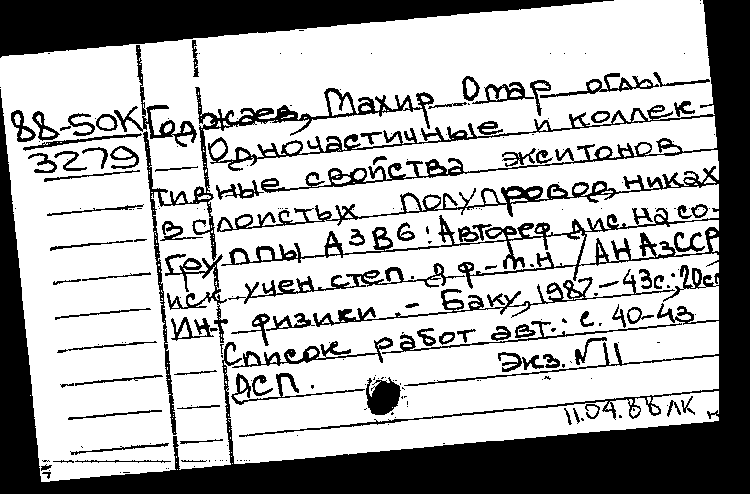 88-50К Годжаев, Махир Омар оглы
3279 Одночастичные и коллек-
тивные свойства экситонов
в слоистых полупроводниках
группы А3В6: Автореф дис. на со-
иск учен. степ. д.ф.-м.н. / АН АзССР
Инт физики. - Баку, 1987. - 43с.; 20см
Список работ авт.: с. 40-43
ДСП. Экз. №11
11.04.88 ЛК